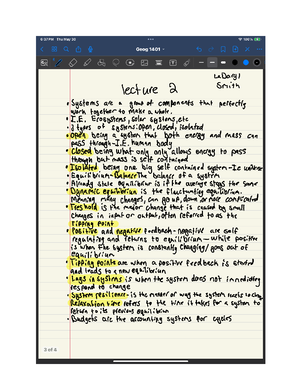 6:27 PM Thu May 20
Geog 1401
LaDaryl
Smith
lecture 2
• Systems are a group of components that perfectly
work together to make a whole.
• I.E. Ecosystems, solar systems, etc
• 3 types of systems: open, closed, isolated
• Open being a system that both energy and mass can
pass through - I.E. human body
• Closed being what only only allows energy to pass
though but mass is self contained
• Isolated being one big self contained system - I.e universe
• Equilibrium - Balance The balance of a system
• Already state equilibrium is if the average stays the same
• Dynamic equilibrium is the fluctuating equilibrium.
Meaning many changes, can go up, down or more complicated
• Threshold is the major change that is caused by small
changes in input or output, often referred to as the
tipping point
• Positive and negative feedback - negative are self
regulating and return to equilibrium - while positive
is when the system is constantly changing/going out of
equilibrium
• Tipping points are when a positive feedback is started
and leads to a new equilibrium
• Lags in systems is when the system does not immediately
respond to change
• System resilience - is the manner or way the system reacts to change
• Relaxation time refers to the time it takes for a system to
return to its previous equilibrium
• Budgets are the accounting systems for cycles
3 of 4